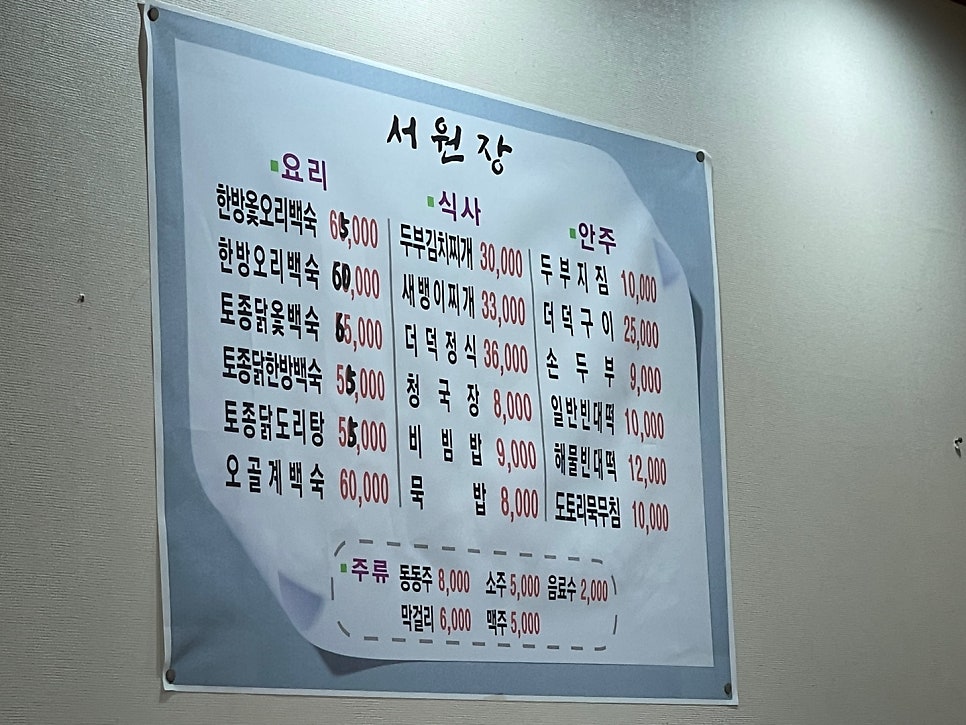 서원장
요리
한방옻오리백숙 65,000
한방오리백숙 60,000
토종닭옻백숙 65,000
토종닭한방백숙 55,000
토종닭도리탕 55,000
오골계백숙 60,000
식사
두부김치찌개 30,000
새뱅이찌개 33,000
더덕정식 36,000
청국장 8,000
비빔밥 9,000
묵밥 8,000
안주
두부지짐 10,000
더덕구이 25,000
손두부 9,000
일반빈대떡 10,000
해물빈대떡 12,000
도토리묵무침 10,000
주류 동동주 8,000 소주 5,000 음료수 2,000
막걸리 6,000 맥주 5,000